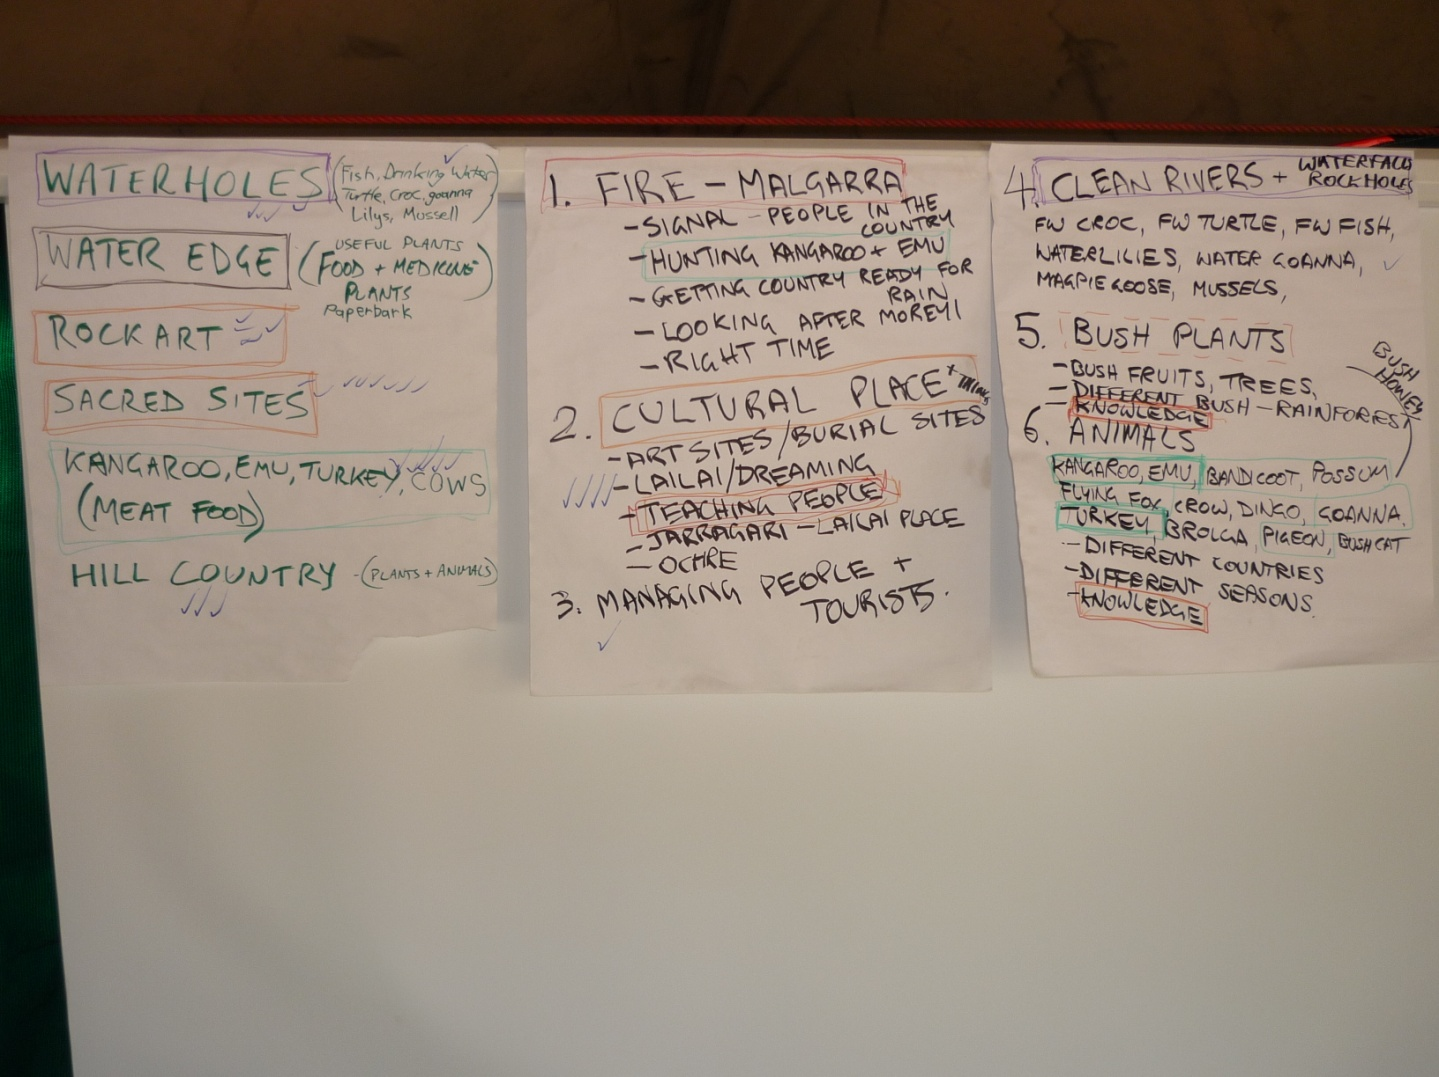 WATERHOLES (Fish, Drinking Water
Turtle, Croc, goanna
Lilys, Mussell)
WATER EDGE (USEFUL PLANTS
FOOD + MEDICINE)
PLANTS
Paperbark
ROCK ART
SACRED SITES
KANGAROO, EMU, TURKEY, COWS
(MEAT FOOD)
HILL COUNTRY - (PLANTS + ANIMALS)
1. FIRE - MALGARRA
- SIGNAL - PEOPLE IN THE
COUNTRY
- HUNTING KANGAROO + EMU
- GETTING COUNTRY READY FOR
RAIN
- LOOKING AFTER
- RIGHT TIME
2. CULTURAL PLACE + THINGS
- ART SITES/BURIAL SITES
- LAILAI/DREAMING
- TEACHING PEOPLE
- JARRAGARI - LAILAI PLACE
- OCHRE
3. MANAGING PEOPLE +
TOURISTS.
4. CLEAN RIVERS + WATERFALLS
ROCKHOLES
FW CROC, FW TURTLE, FW FISH,
WATERLILIES, WATER GOANNA,
MAGPIE GOOSE, MUSSELS,
5. BUSH PLANTS
- BUSH FRUITS, TREES,
- DIFFERENT BUSH - RAINFOREST
- KNOWLEDGE
BUSH
HONEY
6. ANIMALS
KANGAROO, EMU, BANDICOOT, POSSUM
FLYING FOX, CROW, DINGO, GOANNA.
TURKEY, BROLGA, PIGEON, BUSH CAT
- DIFFERENT COUNTRIES
- DIFFERENT SEASONS.
- KNOWLEDGE